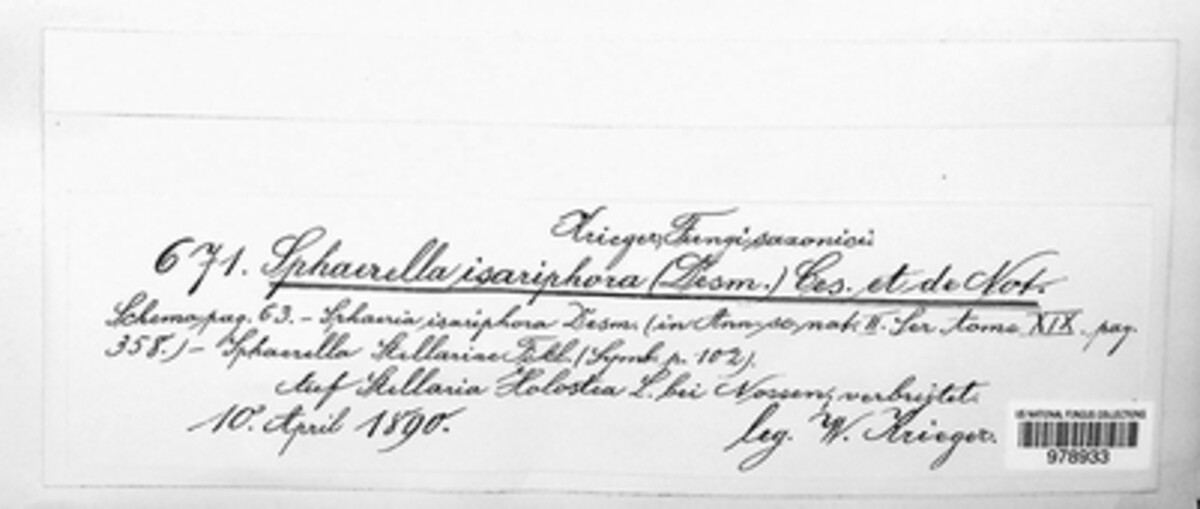 Krieger, Fungi saxonici
671. Sphaerella isariphora (Desm.) Ces. et de Not.
Schema pag. 63. – Sphaeria isariphora Desm. (in Ann. sc. nat. II. Ser. tome XIX. pag.
358.) – Sphaerella Stellariae Fckl. (Symb. p. 102).
Auf Stellaria Holostea L. bei Nossen, verbreitet.
10. April 1890.
leg. W. Krieger.
US NATIONAL FUNGUS COLLECTIONS
978933